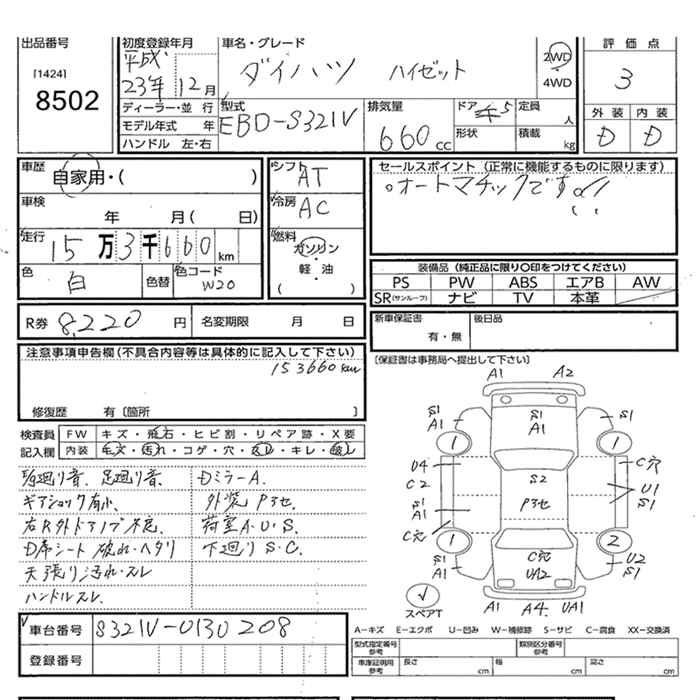 出品番号
[1424]
8502
初度登録年月
平成
23年 12月
車名・グレード
ダイハツ ハイゼット
2WD
4WD
評価点
3
外装 内装
D D
ディーラー・並行
モデル年式 年
ハンドル 左・右
型式
EBD-S321V
排気量
660cc
ドア 5
形状
定員 人
積載 kg
車歴
自家用・( )
車検
年 月( 日)
走行
15万3千660km
色
白
色替
色コード
W20
シフト
AT
冷房
AC
燃料
ガソリン
・
軽・油
( )
セールスポイント (正常に機能するものに限ります)
オートマチックです
装備品 (純正品に限り○印をつけてください)
PS PW ABS エアB AW
SR(サンルーフ) ナビ TV 本革
R券 8,220円 名変期限 月 日
新車保証書
有・無
後日品
注意事項申告欄(不具合内容等は具体的に記入して下さい)
153660km
修復歴 有〔箇所 〕
〔保証書は事務局へ提出して下さい〕
検査員 FW キズ・飛石・ヒビ割・リペア跡・X要
記入欄 内装 ・汚れ・コゲ・穴・ ・キレ・破レ
音. 足廻り音. DミラーA.
ギアショック有小. 外装 Pヨセ.
右R外ドアノブ不良. 荷室A.U.S.
D席シート 破れ・ヘタリ 下廻りS.C.
天張り汚れ・スレ
ハンドルスレ.
A1 A2
S1 A1
S1 A1
S1
1 1
U4
C2
S1 A1
C穴
S2
Pヨセ
C穴
U1
S1
1 2
S1 A1
C穴
UA2
U2
S1
スペアT
A1 A4. UA1
車台番号 S321V-0130208
登録番号
A-キズ E-エクボ U-凹み W-補修跡 S-サビ C-腐食 XX-交換済
型式指定番号
参考
類別区分番号
参考
車庫証明用
参考
長さ cm 幅 cm 高さ cm